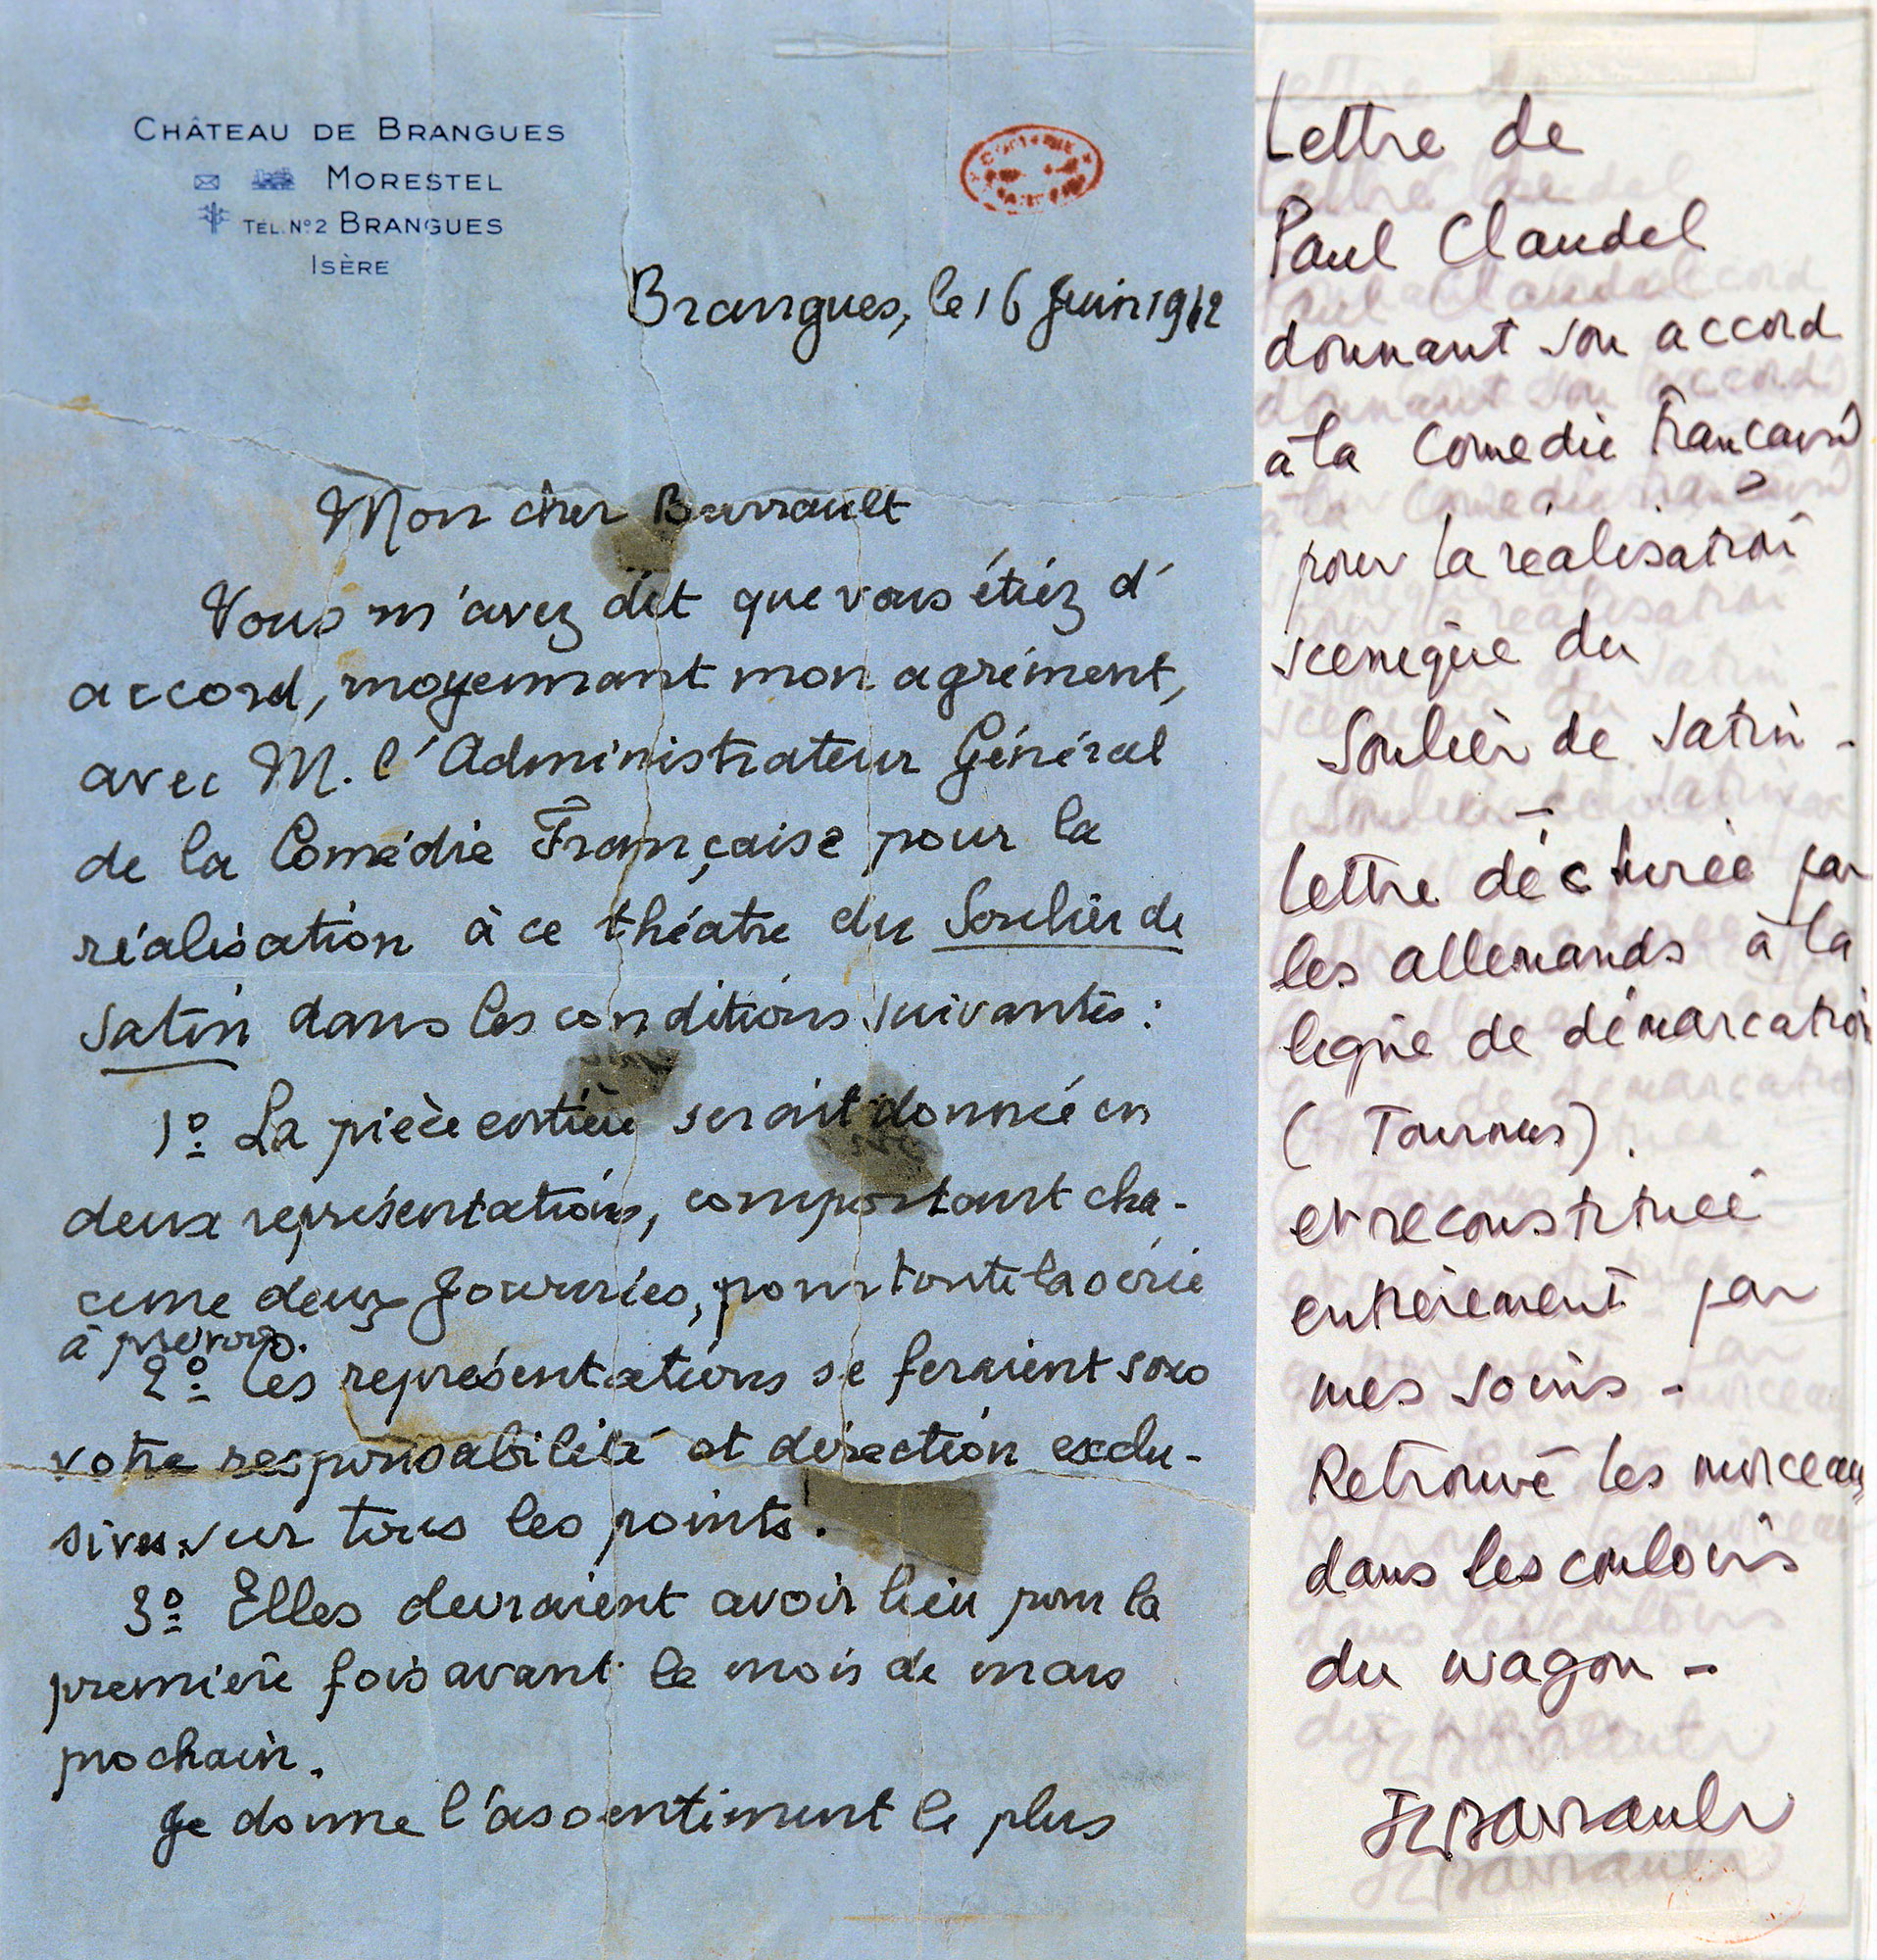 CHÂTEAU DE BRANGUES
MORESTEL
TÉL. Nº 2 BRANGUES
ISÈRE
Brangues, le 16 Juin 1942
Mon cher Barrault
Vous m'avez dit que vous étiez d'
accord, moyennant mon agrément,
avec M. l'Administrateur Général
de la Comédie Française pour la
réalisation à ce théatre du Soulier de
Satin dans les conditions suivantes :
1º La pièce entière serait donnée en
deux représentations, comportant cha-
cune deux Journées, pour toute la série
à prévoir.
2º Les représentations se feraient sous
votre responsabilité et direction exclu-
sives sur tous les points.
3º Elles devraient avoir lieu pour la
première fois avant le mois de mars
prochain.
Je donne l'assentiment le plus
Lettre de
Paul Claudel
donnant son accord
à la Comedie Française
pour la réalisation
scenique du
Soulier de Satin -
Lettre déchirée par
les allemands à la
ligne de démarcation
(Tournus).
et reconstituée
entièrement par
mes soins -
Retrouvé les morceaux
dans les couloirs
du wagon -
JLBarrault